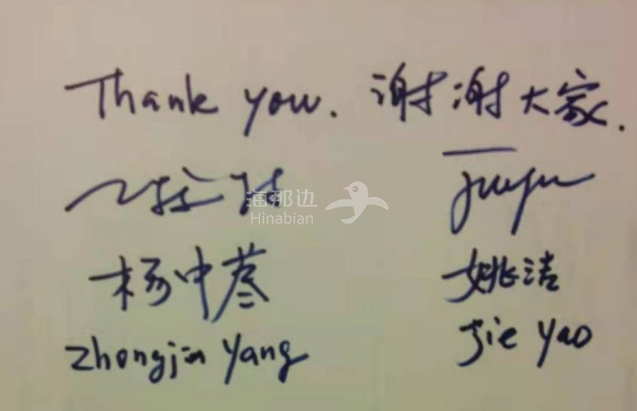 Thank you. 谢谢大家.
海那边
Hinabian
杨中荩 姚洁
Zhongjin Yang Jie Yao